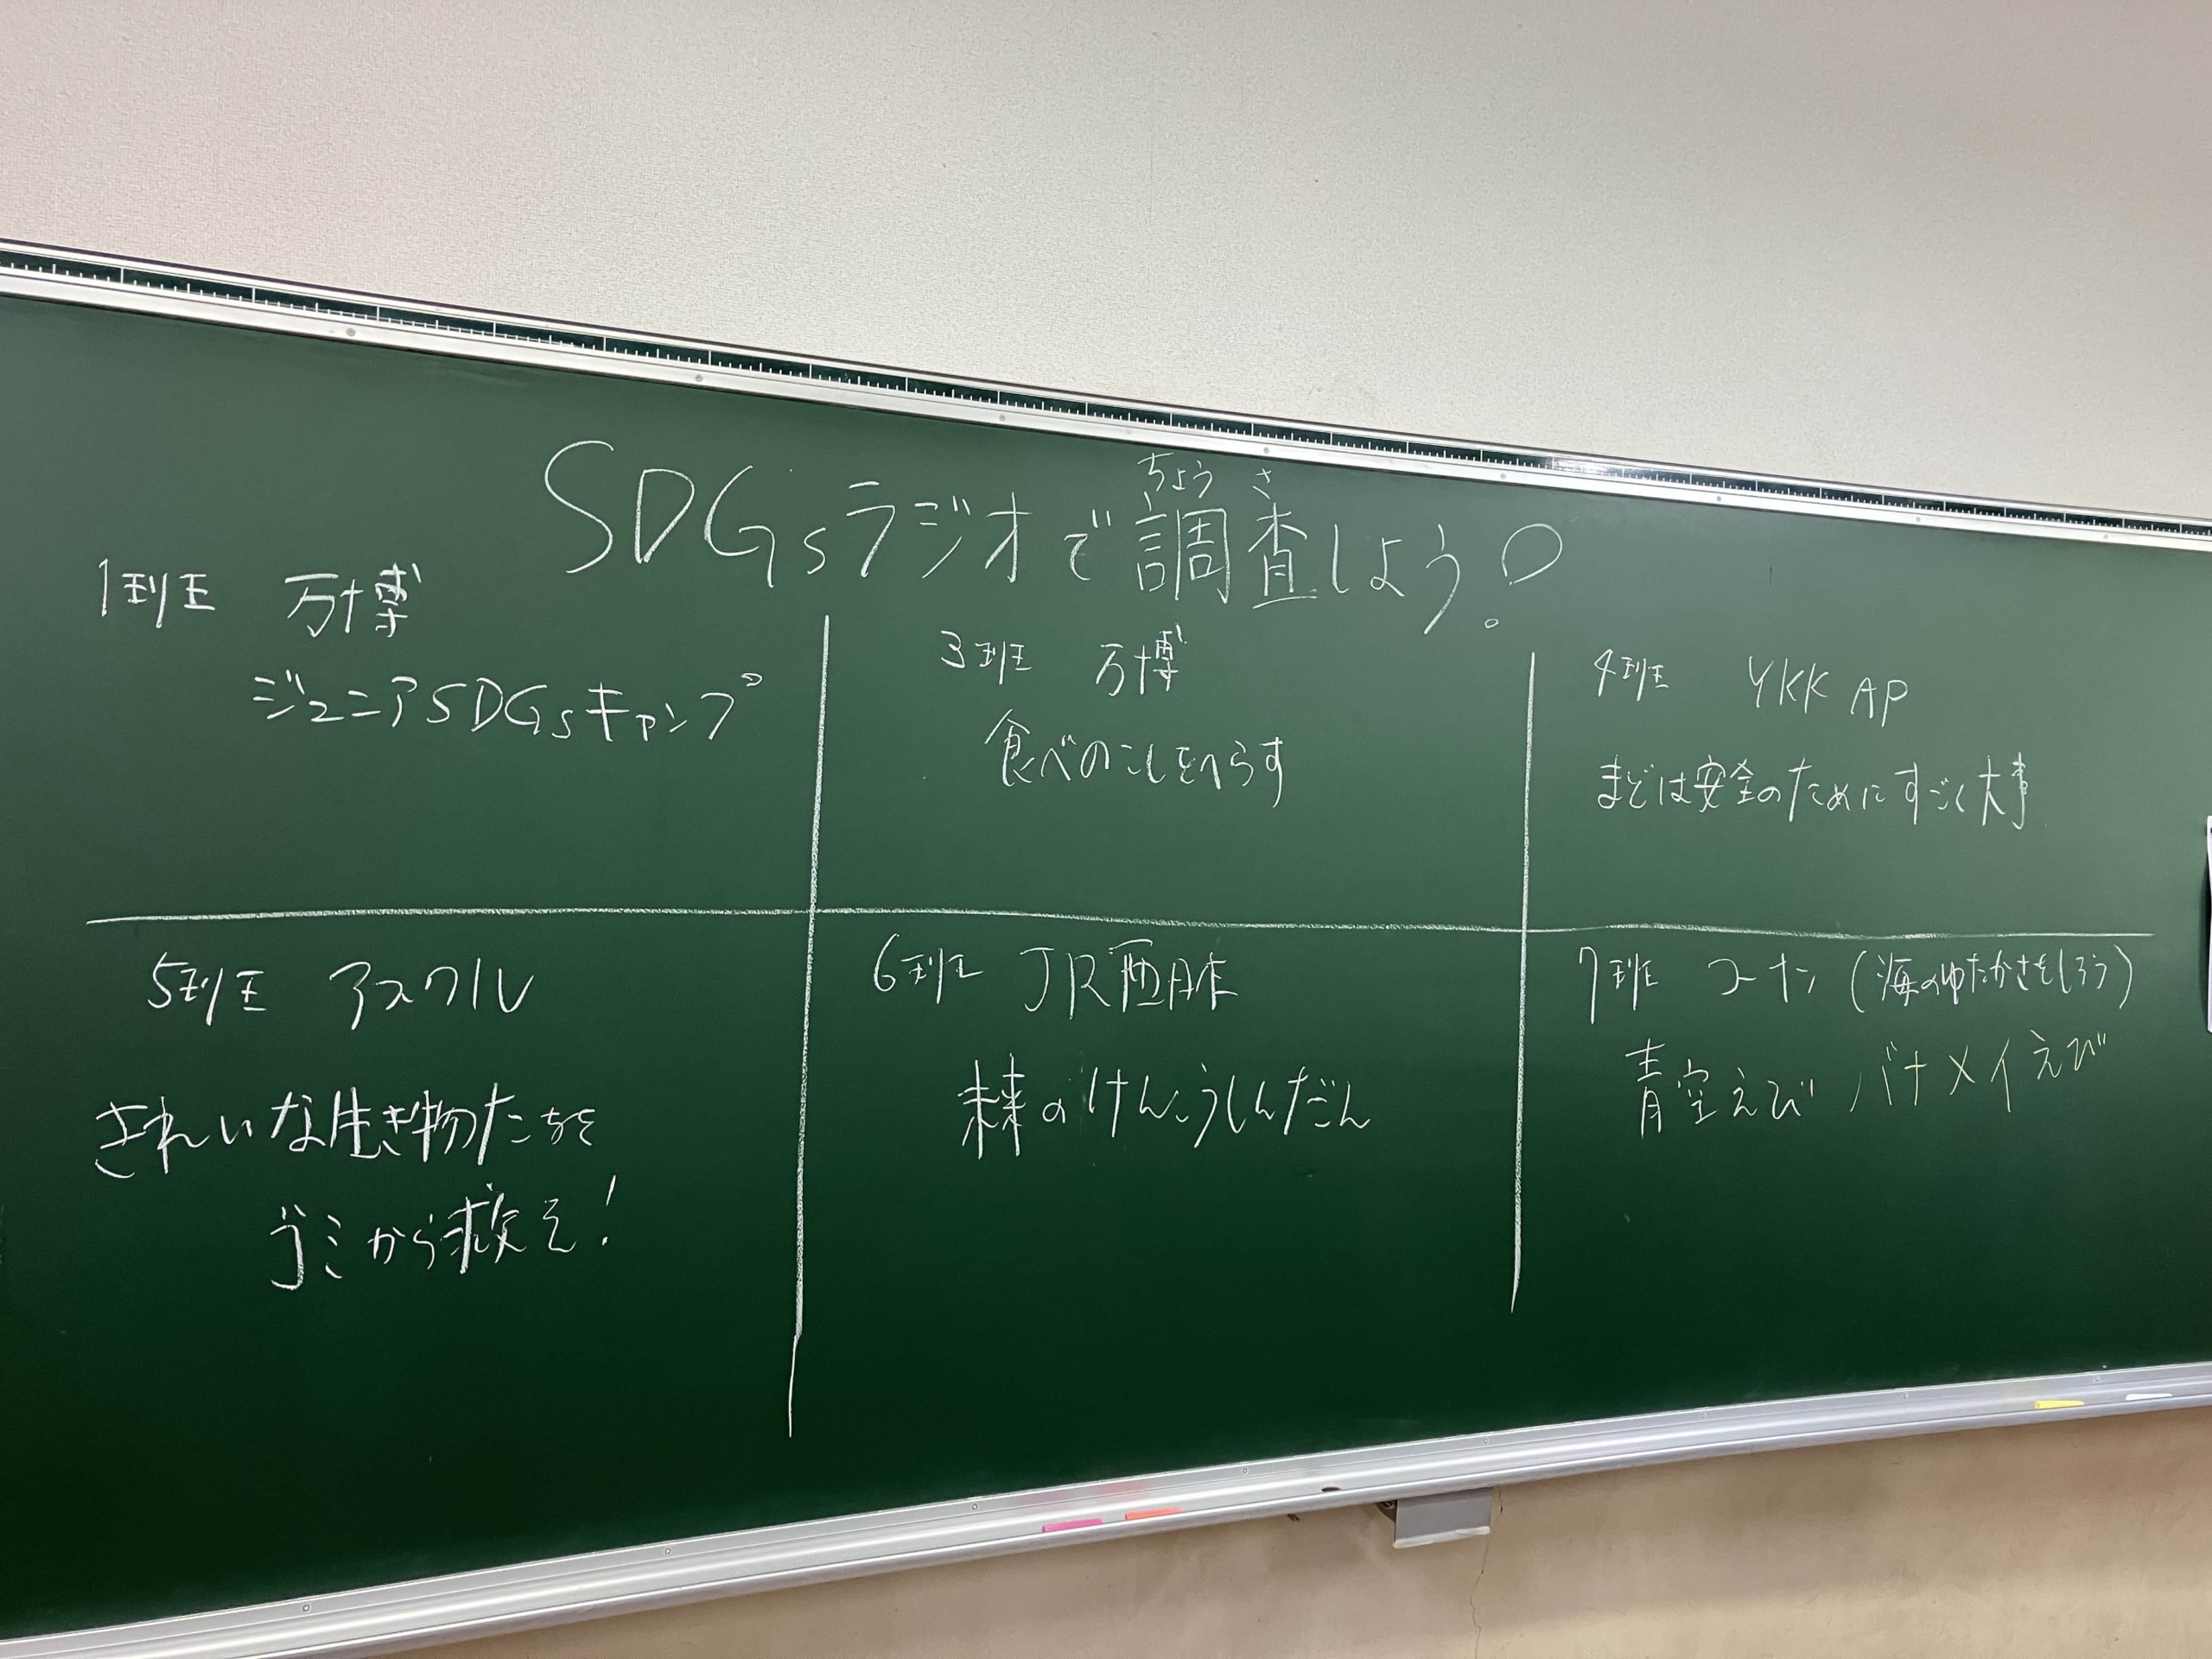 SDGsラジオで調査しよう!
ちょう さ
1班 万博
ジュニアSDGsキャンプ
3班 万博
食べのこしをへらす
4班 YKK AP
まどは安全のためにすごく大事
5班 アスクル
きれいな生き物たちを
ゴミから救え!
6班 JR西日本
未来のけんこうしんだん
7班 コーナン (海のゆたかさをしろう)
青空えび バナメイえび